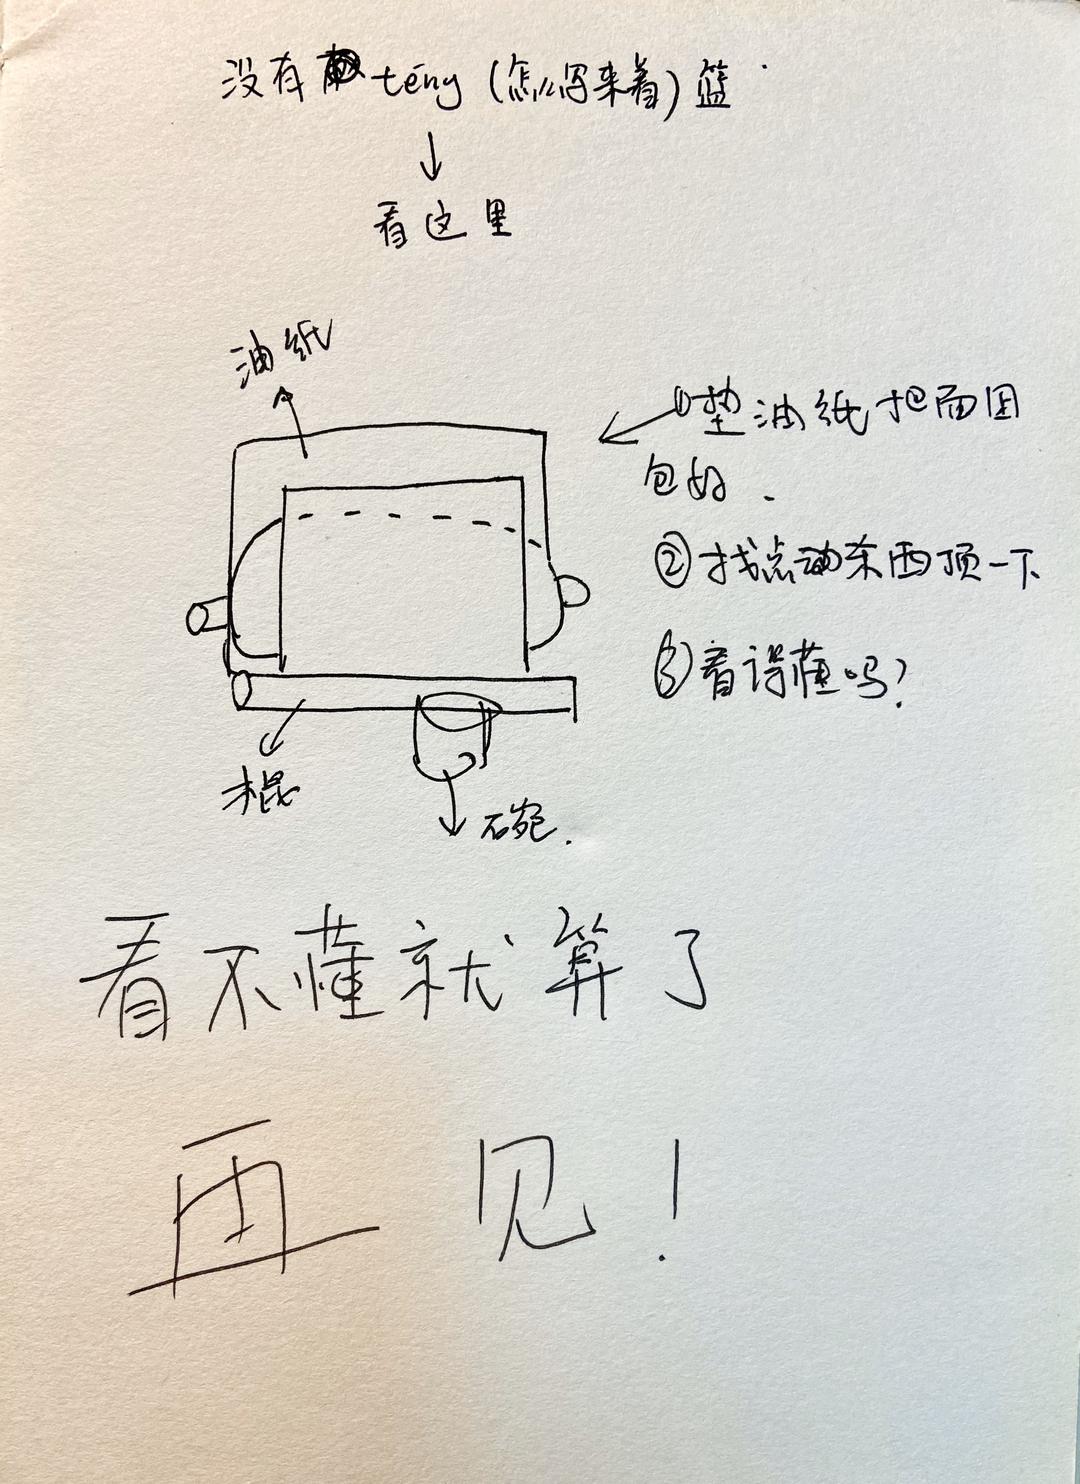 没有téng(怎么写来着)篮
看这里
油纸
①垫油纸把面团
包好.
②找点东西顶一下
③看得懂吗?
棍
碗.
看不懂就算了
再见!